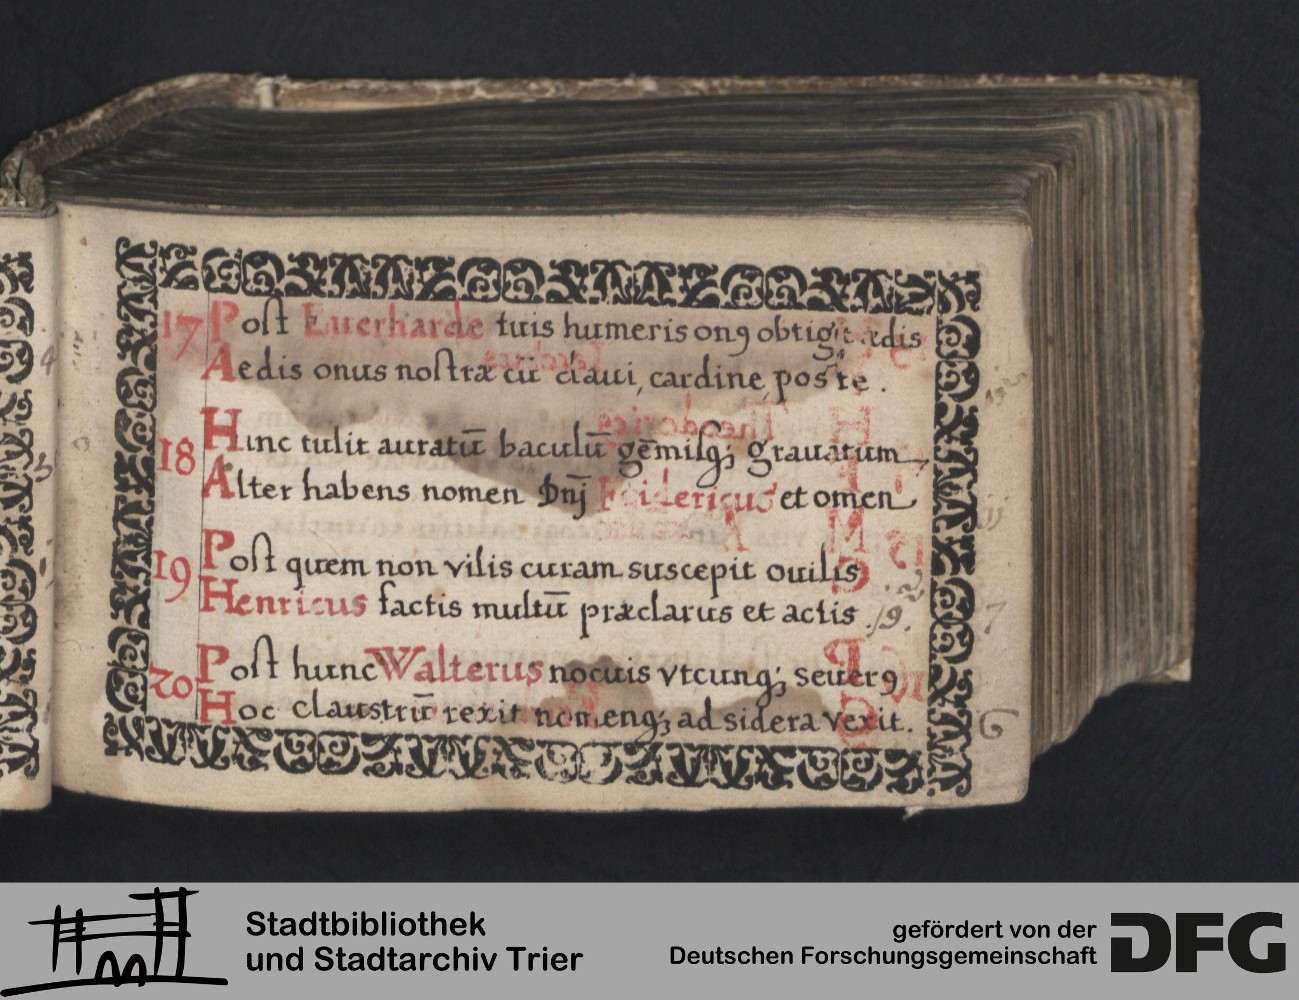 17 Post Euerharde tuis humeris onꝯ obtigit ædis
Aedis onus nostræ cū claui, cardine, poste.
18 Hinc tulit auratū baculū gēmisqꝫ grauatum
Alter habens nomen Dnj Fridericus et omen
19 Post quem non vilis curam suscepit ouilis
Henricus factis multū præclarus et actis .19.
20 Post hunc Walterus nocuis vtcunqꝫ seuerꝯ
Hoc claustrū rexit nomenqꝫ ad sidera vexit.
6
Stadtbibliothek
und Stadtarchiv Trier
gefördert von der
Deutschen Forschungsgemeinschaft
DFG